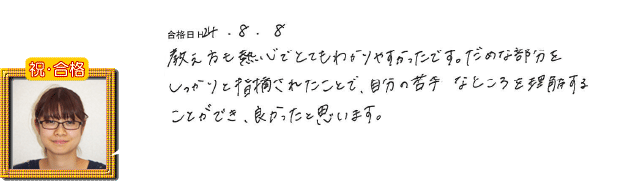 合格日 H24.8.8
祝・合格
教え方も熱心でとてもわかりやすかったです。だめな部分を
しっかりと指摘されたことで、自分の苦手 なところを理解する
ことができ、良かったと思います。